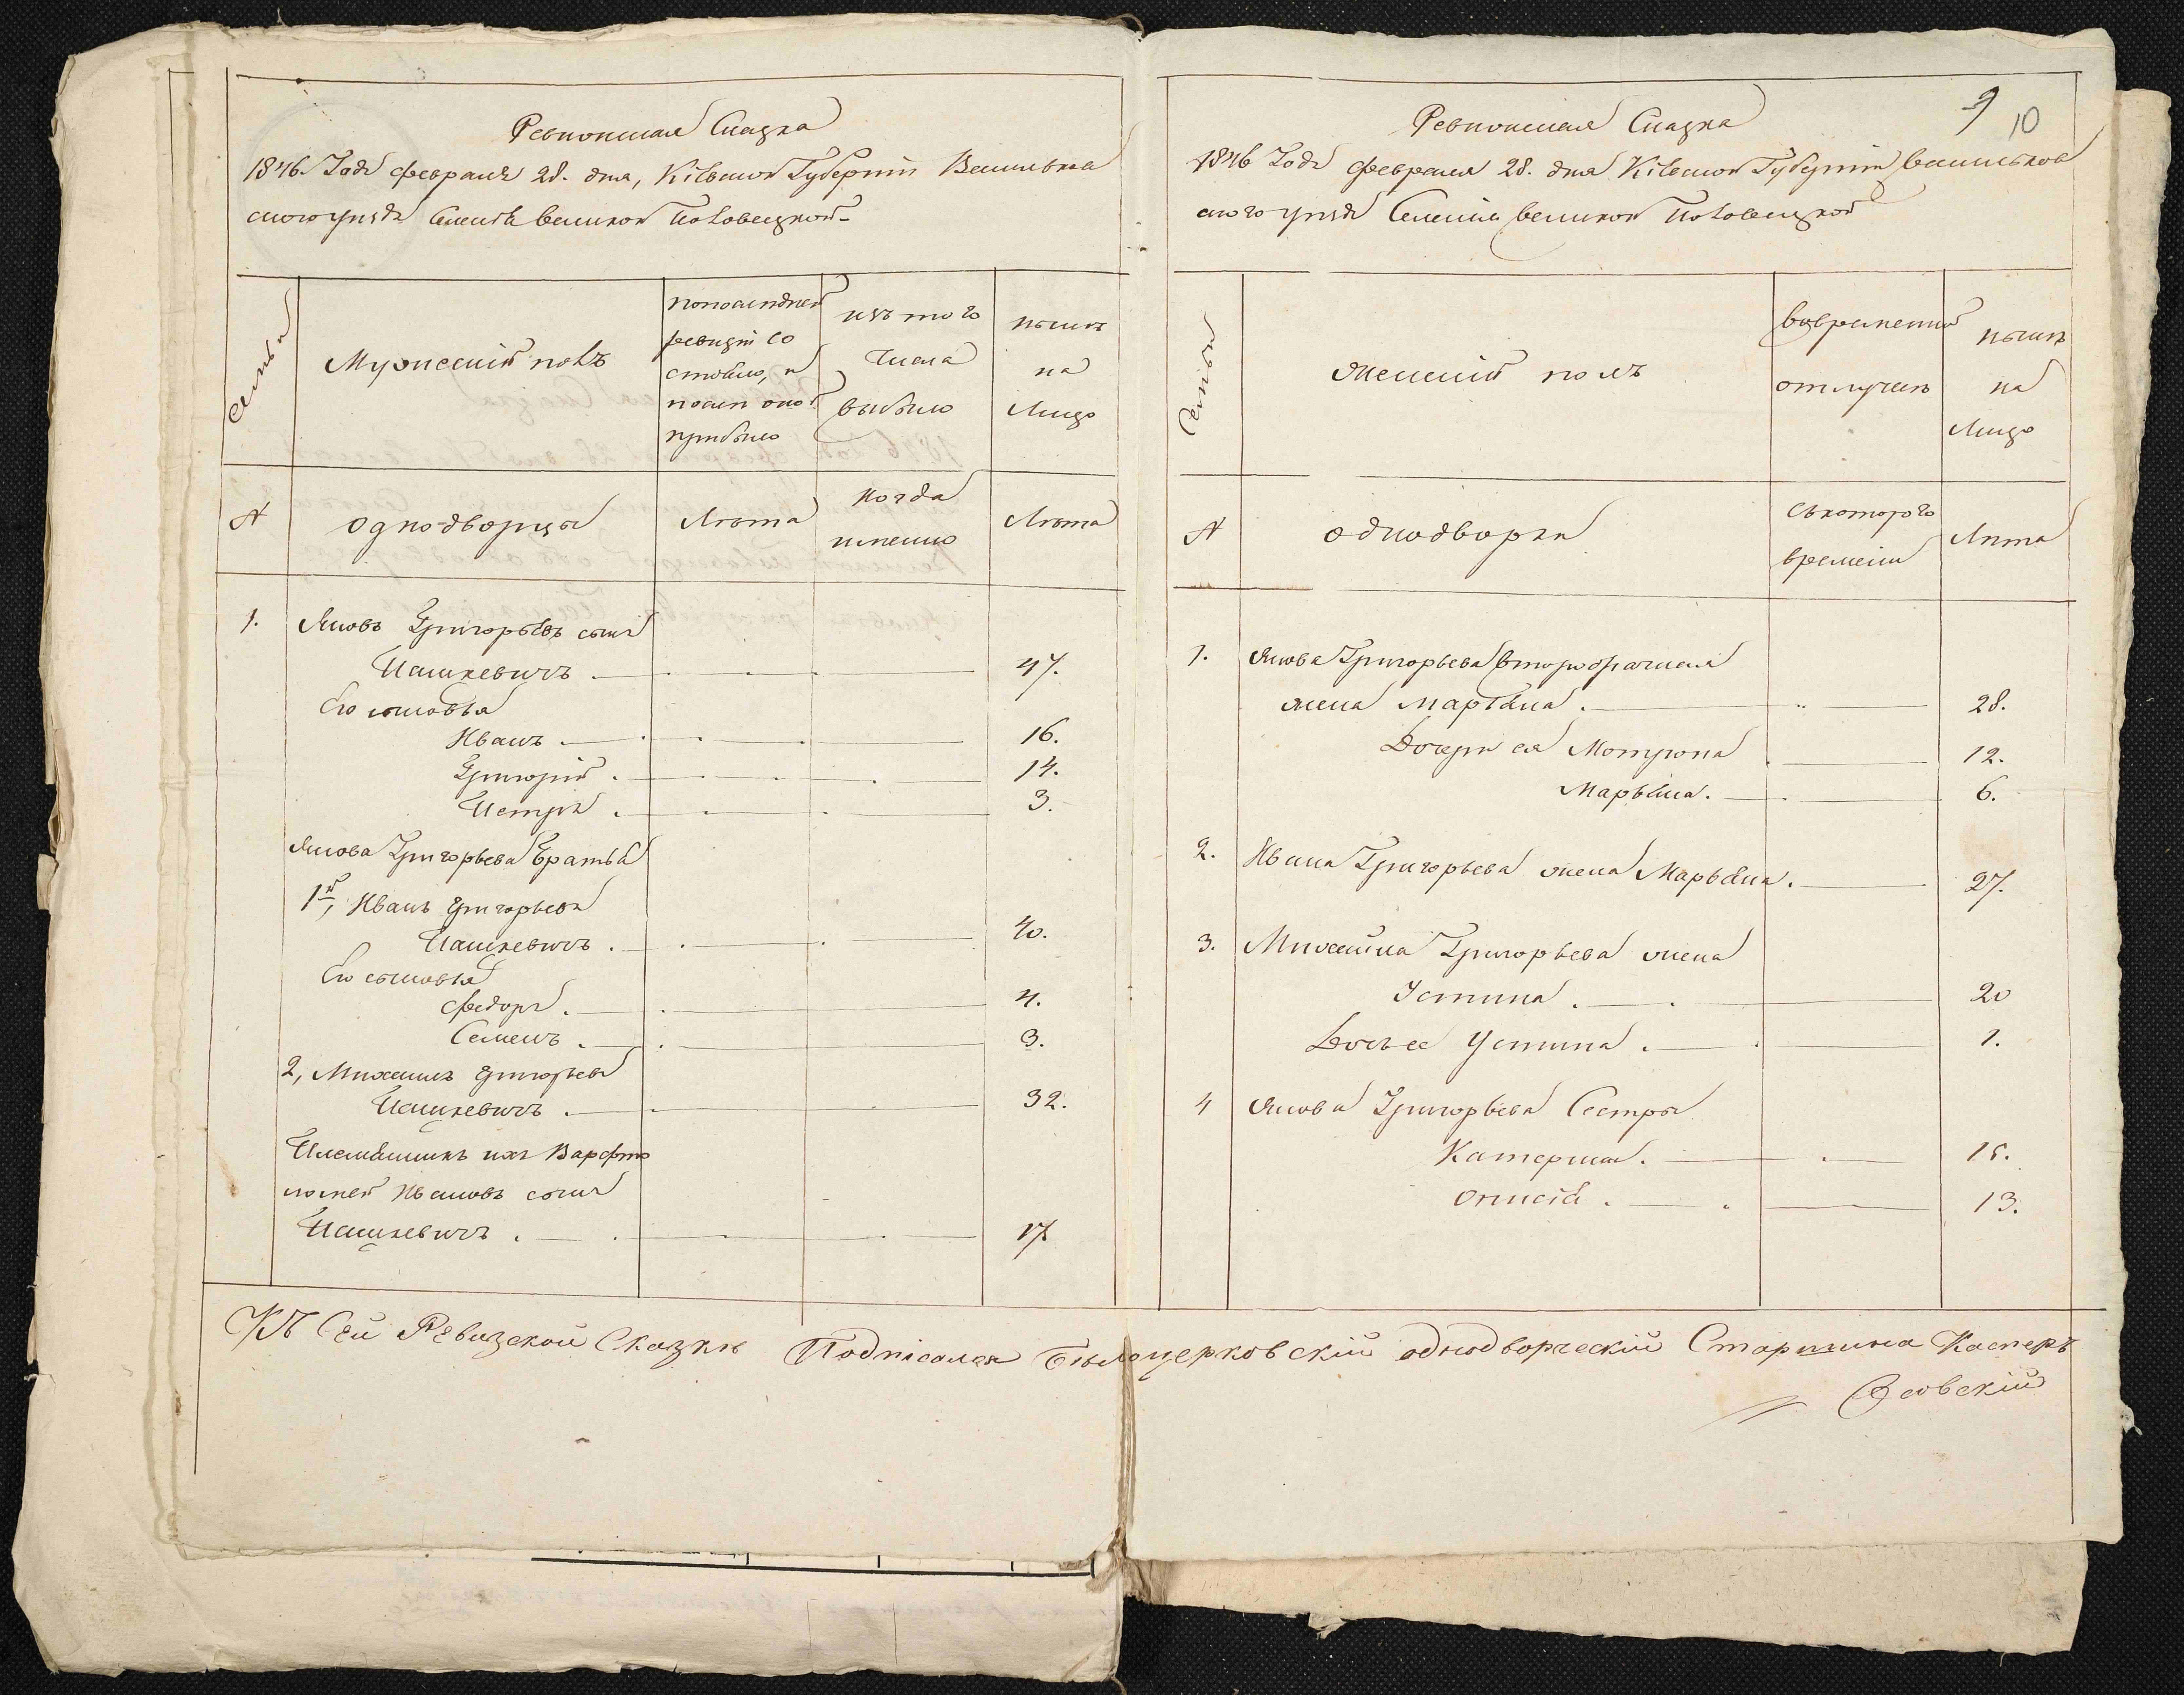 Ревизская Сказка
1846. Года февраля 28. дня, Кіевской Губерніи Васильков
ского уѣзда Селенія Великой Половецкой
Семьи
Мужескій полъ
по послѣдней
ревизіи со
стояло, и
послѣ оной
прибыло
изъ того
числа
выбыло
нынѣ
на
лицо
№
однодворцы
Лѣта
когда
именно
Лѣта
1. Яковъ Григорьевъ сынъ
Пашкевичъ . 47.
Его сыновья
Иванъ . 16.
Григорій . 14.
Петръ . 3.
Якова Григорьева Братья
1й, Иванъ Григорьевъ
Пашкевичъ . 40.
Его сыновья
Федоръ . 4.
Семенъ . 3.
2, Михаилъ Григорьевъ
Пашкевичъ . 32.
Племянникъ ихъ Варфо
ломей Ивановъ сынъ
Пашкевичъ . 17.
9 10
Ревизская Сказка
1846 Года февраля 28. дня Кіевской Губерніи Васильков
ского уѣзда Селенія Великой Половецкой
Семьи
Женскій полъ
во временной
отлучкѣ
нынѣ
на
лицо
№
однодворки
съ которого
времени
Лѣта
1. Якова Григорьева второбрачная
жена Марьяна . 28.
Дочери ея Мотрона 12.
Марьяна . 6.
2. Ивана Григорьева жена Марьяна . 27.
3. Михайла Григорьева жена
Устина . 20
Дочь ее Устина . 1.
4 Якова Григорьева Сестры
Катерина . 15.
Онисія . 13.
Къ Сей Ревизской Сказки Подписался Бѣлоцерковскій однодворческій Старшина Касперъ
Осовскій